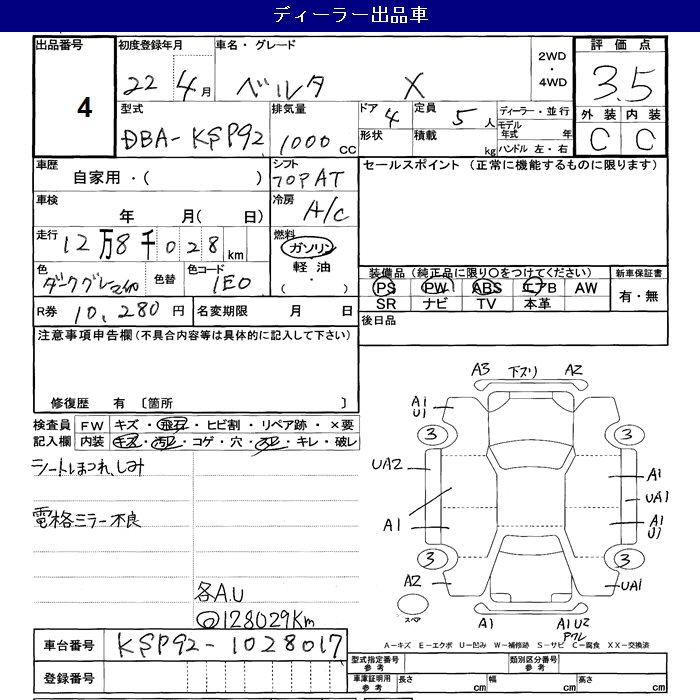 ディーラー出品車
出品番号 4
初度登録年月 22 4月
車名・グレード ベルタ X
2WD・4WD
評価点 3.5
外装 内装
C C
型式 DBA-KSP92
排気量 1000 CC
ドア 4
形状
定員 5 人
積載 kg
ディーラー・並行
モデル年式 年
ハンドル 左・右
車歴 自家用・( )
シフト フロアAT
セールスポイント (正常に機能するものに限ります)
車検 年 月( 日)
冷房 A/C
走行 12万8千028km
燃料 ガソリン
軽油
( ・ )
色 色替 色コード 1E0
装備品 (純正品に限り〇をつけてください)
PS PW ABS エアB AW
SR ナビ TV 本革
新車保証書
有・無
R券 10,280 円
名変期限 月 日
後日品
注意事項申告欄 (不具合内容等は具体的に記入して下さい)
修復歴 有 〔箇所 〕
検査員記入欄
FW キズ・飛石・ヒビ割・リペア跡・×要
内装 キズ・汚レ・コゲ・穴・スレ・キレ・破レ
シートほつれ、しみ
電格ミラー不良
各A.U
128029Km
A3 下スリ A2
A1
U1
3 3
UA2
A1
UA1
A1
A1
U1
3 3
A2 UA1
スペア
A1
A1 U2
A-キズ E-エクボ U-凹み W-補修跡 S-サビ C-腐食 XX-交換済
車台番号 KSP92-1028017
登録番号
型式指定番号 参考
類別区分番号 参考
車庫証明用 参考 長さ cm 幅 cm 高さ cm